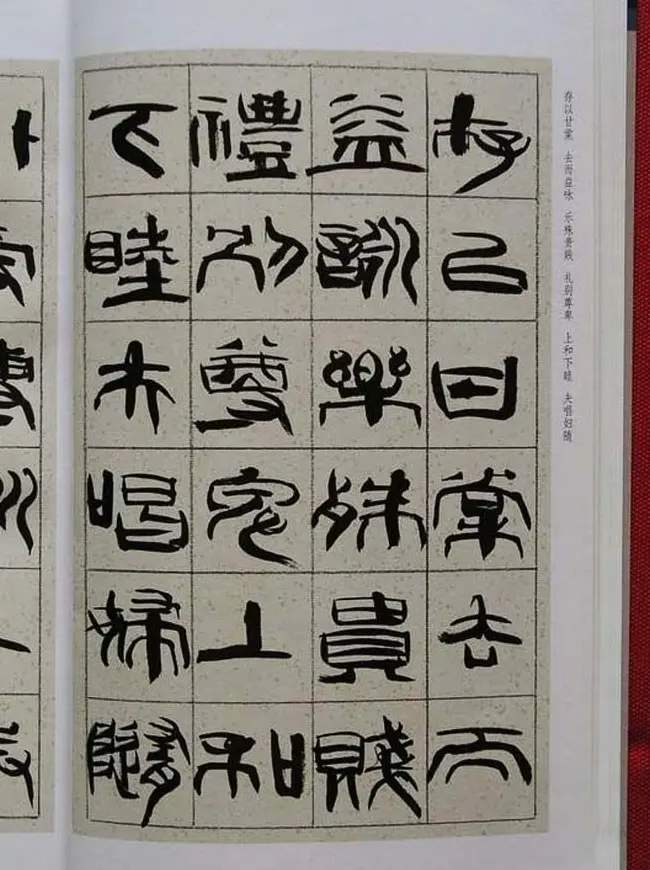 存以甘棠　去而益咏　乐殊贵贱　礼别尊卑　上和下睦　夫唱妇随
存以甘棠去而
益詠樂殊貴賤
禮別尊卑上和
下睦夫唱婦隨